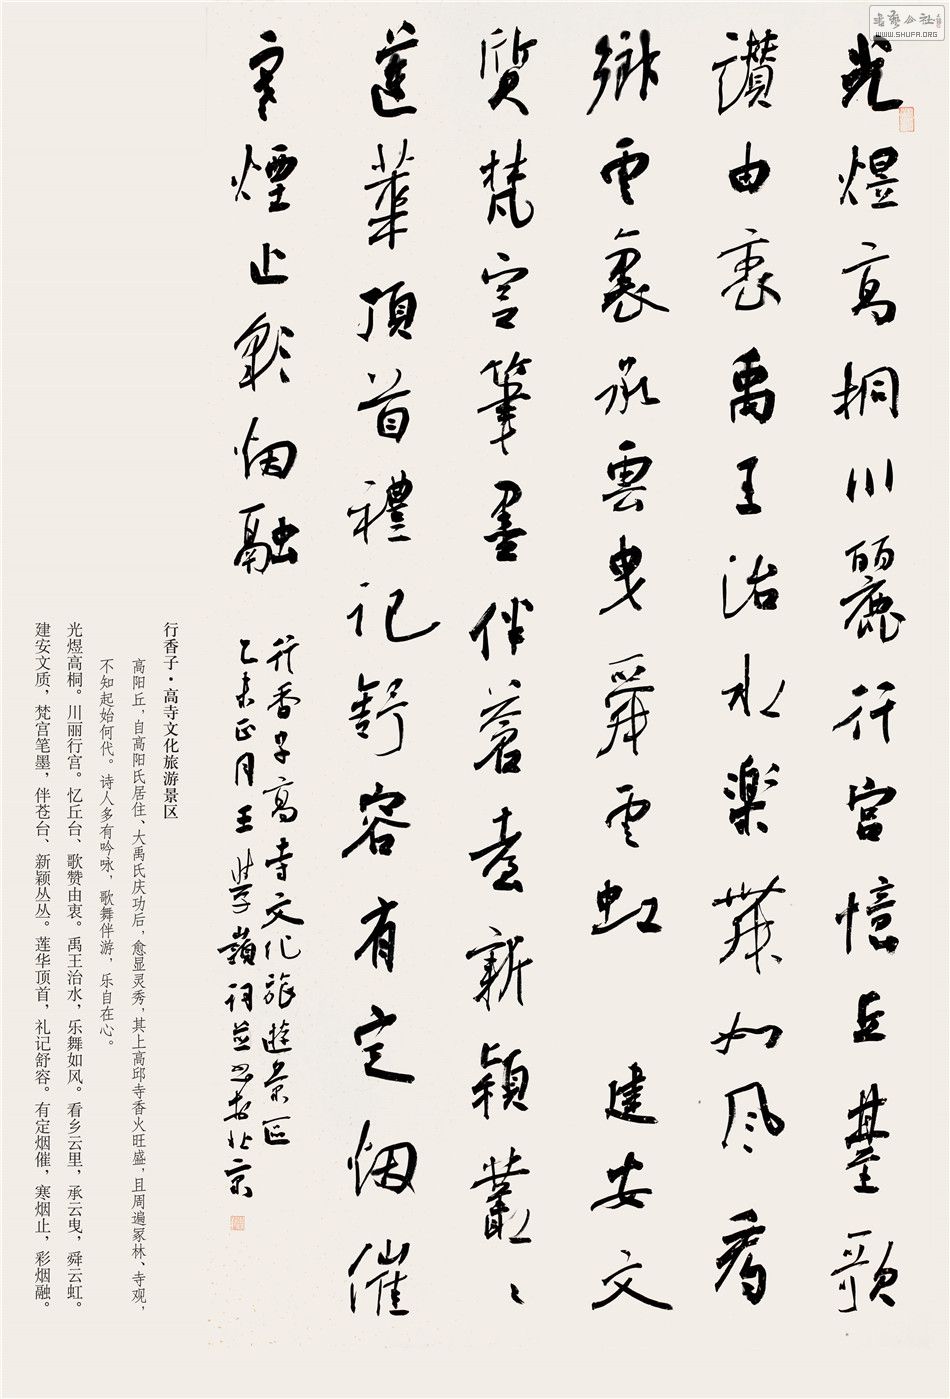 光煜高桐川麗行宮憶丘臺歌
讚由衷禹王治水樂舞如風看
鄉雲裏承雲曳舜雲虹 建安文
質梵宮筆墨伴蒼臺新穎叢〻
蓮華頂首禮記舒容有定烟催
寒煙止彩烟融
行香子高寺文化旅遊景區
乙未正月王學嶺詞並書於北京
行香子·高寺文化旅游景区
高阳丘，自高阳氏居住、大禹氏庆功后，愈显灵秀，其上高邱寺香火旺盛，且周遍冢林、寺观，
不知起始何代。诗人多有吟咏，歌舞伴游，乐自在心。
光煜高桐。川丽行宫。忆丘台、歌赞由衷。禹王治水，乐舞如风。看乡云里，承云曳，舜云虹。
建安文质，梵宫笔墨，伴苍台、新颖丛丛。莲华顶首，礼记舒容。有定烟催，寒烟止，彩烟融。
书艺公社
WWW.SHUFA.ORG